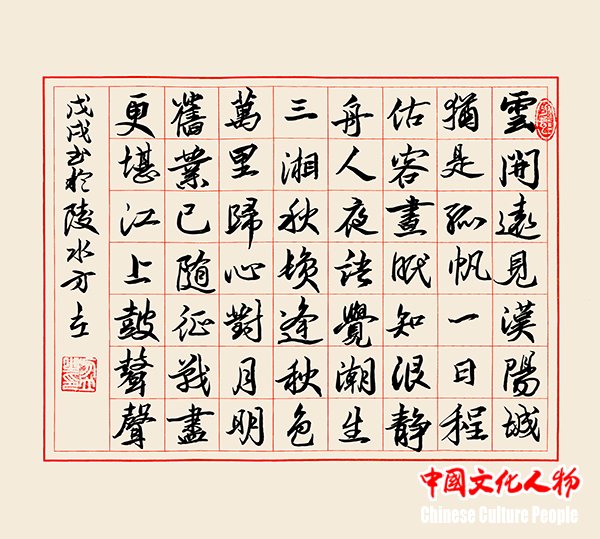 雲開遠見漢陽城
猶是孤帆一日程
估客畫眠知浪静
舟人夜語覺潮生
三湘秋鬢逢秋色
萬里歸心對月明
舊業已隨征戰盡
更堪江上鼓鼙聲
戊戌书於陵水方立
中国文化人物
Chinese Culture People